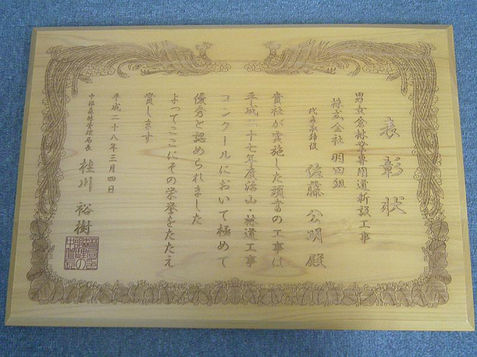 表彰状
林業専用道新設工事
株式会社 羽田組
代表取締役 佐藤公明 殿
貴社が実施した頭書の工事は
平成二十七年度治山・林道工事
コンクールにおいて極めて
優秀と認められました
よってここにその栄誉をたたえ
賞します
平成二十八年三月四日
中部森林管理局長 桂川 裕樹